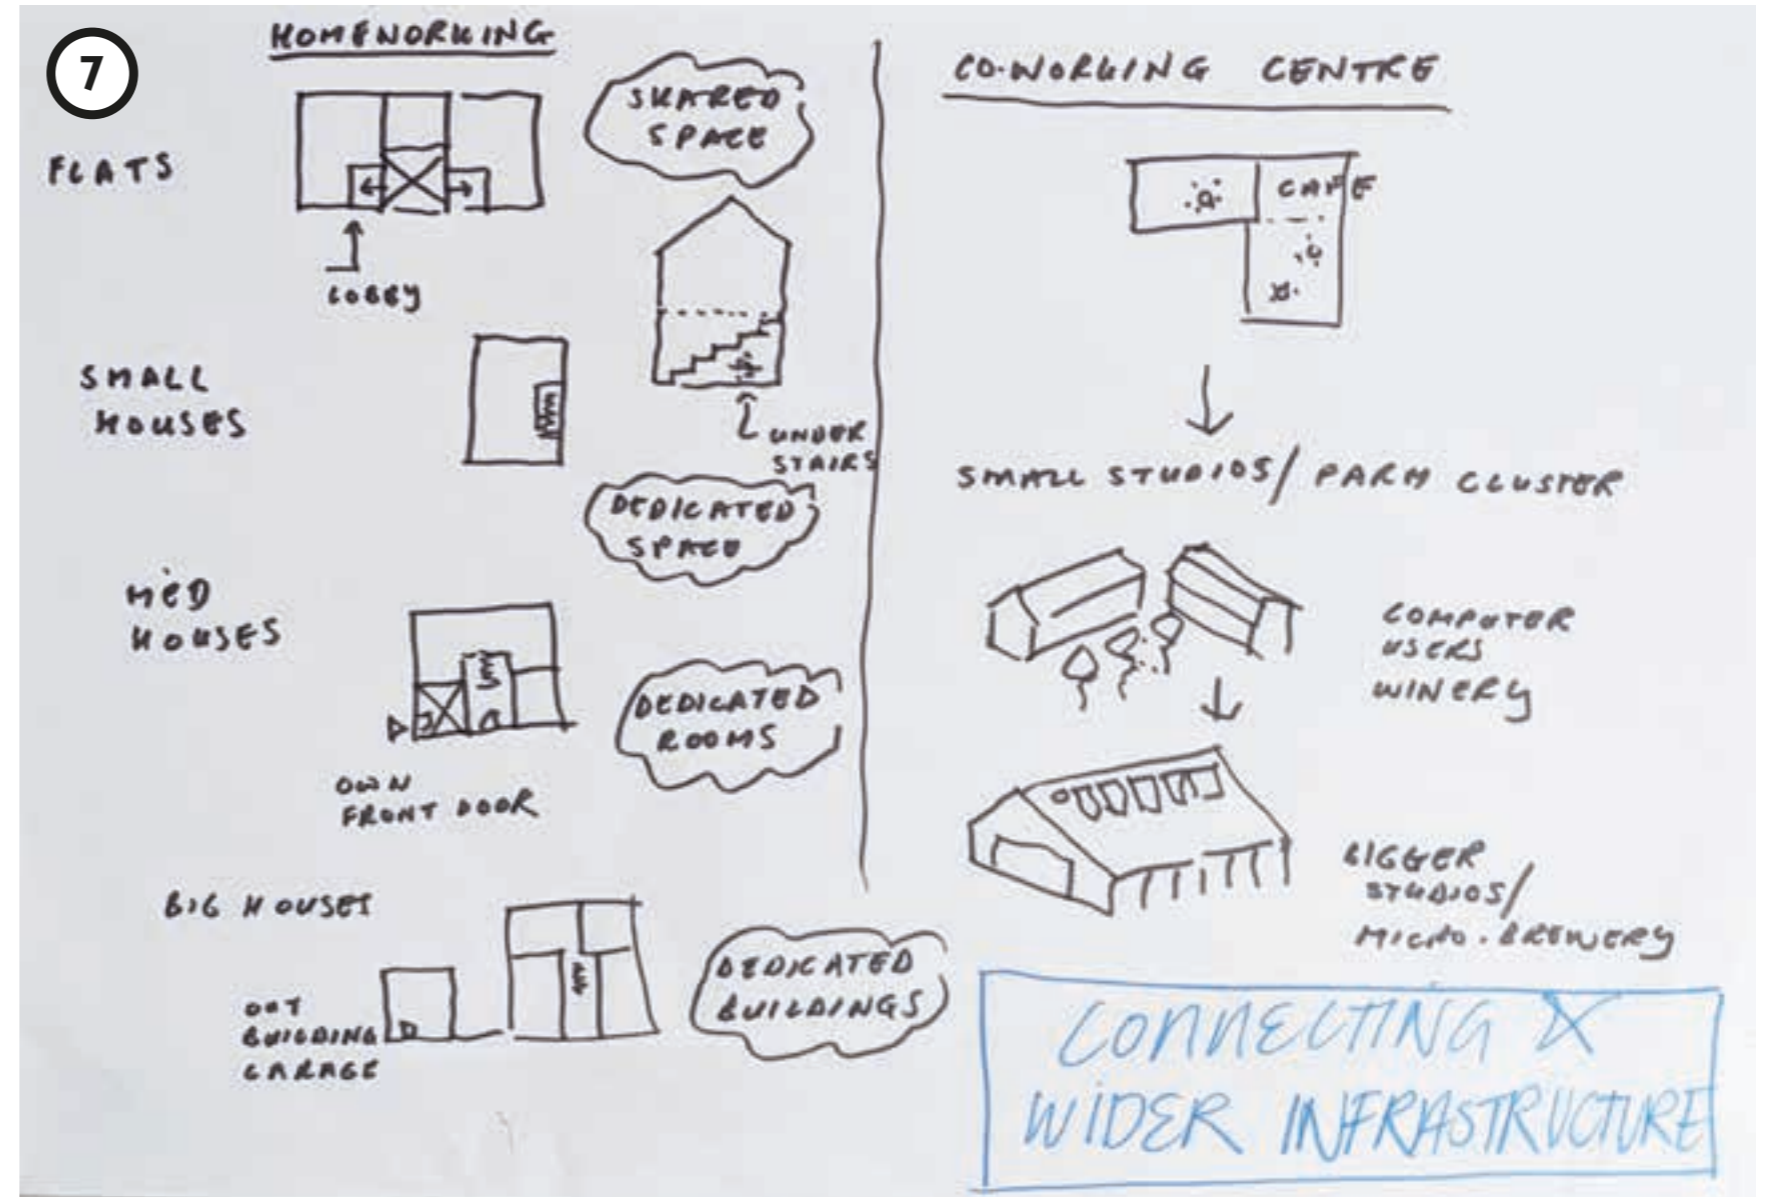 7
HOMEWORKING
FLATS
SHARED
SPACE
LOBBY
SMALL
HOUSES
UNDER
STAIRS
DEDICATED
SPACE
MED
HOUSES
DEDICATED
ROOMS
OWN
FRONT DOOR
BIG HOUSES
OUT
BUILDING
GARAGE
DEDICATED
BUILDINGS
CO-WORKING CENTRE
CAFE
SMALL STUDIOS/ FARM CLUSTER
COMPUTER
USERS
WINERY
BIGGER
STUDIOS/
MICRO-BREWERY
CONNECTING &
WIDER INFRASTRUCTURE